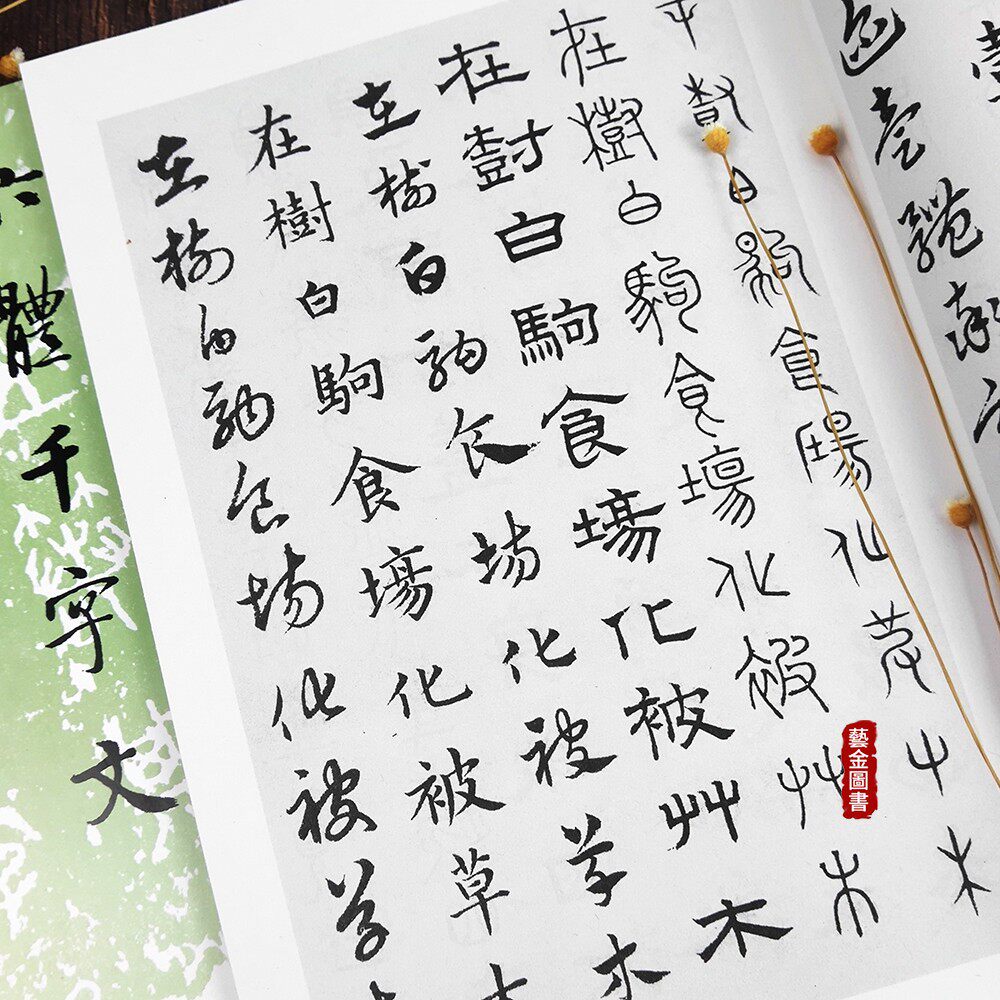 邇壹體率
在樹白駒食場化被艸木
在樹白駒食場化被艸木
在尌白駒食場化被艸木
在樹白駒食場化被草木
在樹白駒食場化被草
在樹白駒食場化被草
六體千字文
藝金圖書